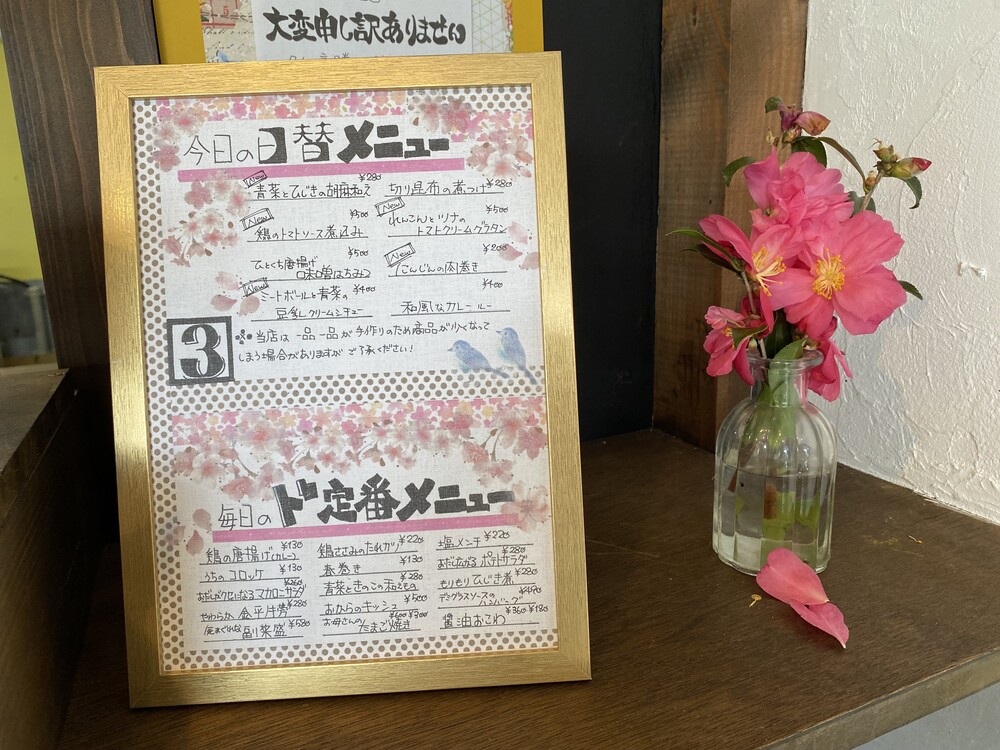 大変申し訳ありません
今日の日替メニュー
New 青菜とひじきの胡麻和え ¥280
切り昆布の煮つけ ¥280
New 鶏のトマトソース煮込み ¥500
New れんこんとツナの ¥500
トマトクリームグラタン
ひとくち唐揚げ ¥500
味噌はちみつ
New にんじんの肉巻き ¥200
New ミートボールと青菜の ¥400
豆乳クリームシチュー
和風なカレールー ¥400
3
当店は一品一品が手作りのため商品が少なくなって
しまう場合がありますがご了承ください!
毎日のド定番メニュー
鶏の唐揚げ(カレー) ¥130
鶏ささみのたれカツ ¥220
塩メンチ ¥220
うちのコロッケ ¥130
春巻き ¥130
おだしがポテトサラダ ¥280
おだしがクセになるマカロニサラダ ¥260
青菜ときのこの和えもの ¥280
もりもりひじき煮 ¥280
やわらかい金平牛蒡 ¥280
おからのキッシュ ¥500
デミグラスソースの ¥490
ハンバーグ
副菜盛 ¥580
お母さんの ¥600 ¥300
たまご焼き
醤油おこわ ¥360 ¥180